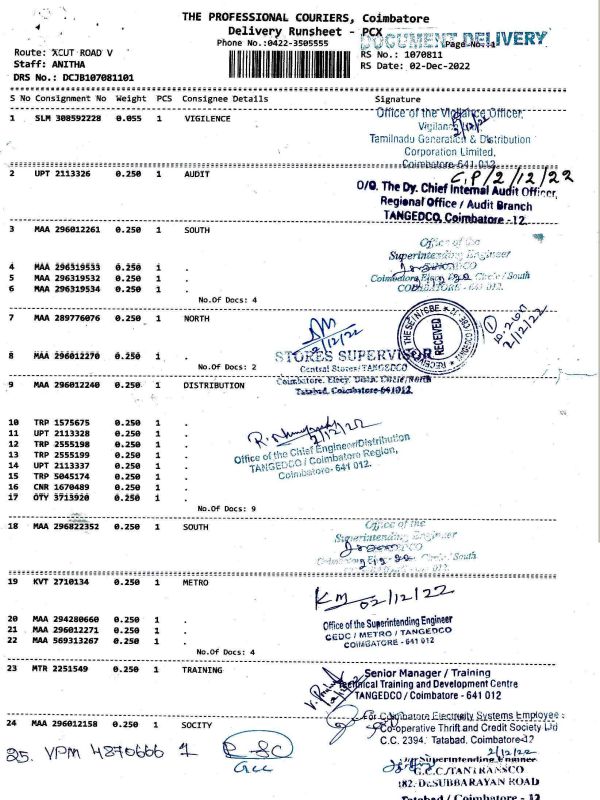 THE PROFESSIONAL COURIERS, Coimbatore
Delivery Runsheet - PCX
DOCUMENT DELIVERY
Phone No.:0422-3505555
Page No.:1
Route: XCUT ROAD V
RS No.: 1070811
Staff: ANITHA
RS Date: 02-Dec-2022
DRS No.: DCJB107081101
S No Consignment No Weight PCS Consignee Details Signature
1 SLM 308592228 0.055 1 VIGILENCE
Office of the Vigilance Officer,
Vigilance
2/12/22
Tamilnadu Generation & Distribution
Corporation Limited,
Coimbatore-641 012
2 UPT 2113326 0.250 1 AUDIT
2/12/22
O/O. The Dy. Chief Internal Audit Officer,
Regional Office / Audit Branch
TANGEDCO, Coimbatore - 12.
3 MAA 296012261 0.250 1 SOUTH
Office of the
Superintending Engineer
4 MAA 296319533 0.250 1 .
5 MAA 296319532 0.250 1 .
Circle / South
6 MAA 296319534 0.250 1 .
COIMBATORE - 641 012.
No.Of Docs: 4
7 MAA 289776076 0.250 1 NORTH
2/12/22
RECEIVED
2/12/22
8 MAA 296012270 0.250 1 .
STORES SUPERVISOR
No.Of Docs: 2
Central Stores/TANGEDCO
9 MAA 296012240 0.250 1 DISTRIBUTION
Coimbatore. Elecy. Distn. Circle/North
Tatabad, Coimbatore-641012
10 TRP 1575675 0.250 1 .
11 UPT 2113328 0.250 1 .
12 TRP 2555198 0.250 1 .
13 TRP 2555199 0.250 1 .
14 UPT 2113337 0.250 1 .
15 TRP 5045174 0.250 1 .
16 CNR 1670489 0.250 1 .
17 OTY 3713920 0.250 1 .
2/12/22
Office of the Chief Engineer/Distribution
TANGEDCO / Coimbatore Region,
Coimbatore- 641 012.
No.Of Docs: 9
18 MAA 296822352 0.250 1 SOUTH
Office of the
Superintending Engineer
Circle / South
19 KVT 2710134 0.250 1 METRO
KM 02/12/22
20 MAA 294280660 0.250 1 .
21 MAA 296012271 0.250 1 .
22 MAA 569313267 0.250 1 .
Office of the Superintending Engineer
CEDC / METRO / TANGEDCO
COIMBATORE - 641 012
No.Of Docs: 4
23 MTR 2251549 0.250 1 TRAINING
Senior Manager / Training
Technical Training and Development Centre
TANGEDCO / Coimbatore - 641 012
24 MAA 296012158 0.250 1 SOCITY
For Coimbatore Electricity Systems Employee
Co-operative Thrift and Credit Society Ltd
C.C. 2394, Tatabad, Coimbatore-12
25. VPM 4870666 1
2/12/22
Superintending Engineer
G.C.C/TANTRANSCO
182, Dr.SUBBARAYAN ROAD
Tatabad / Coimbatore - 12